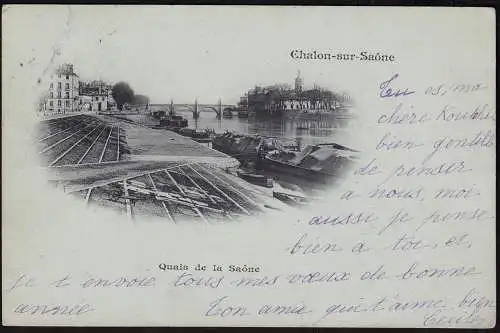 Chalon-sur-Saône
Tu es, ma
chère
bien gentille
de penser
à nous, moi
aussi je pense
bien à toi, et,
Quais de la Saône
je t'envoie tous mes vœux de bonne
année Ton amie qui t'aime bien
Cécile